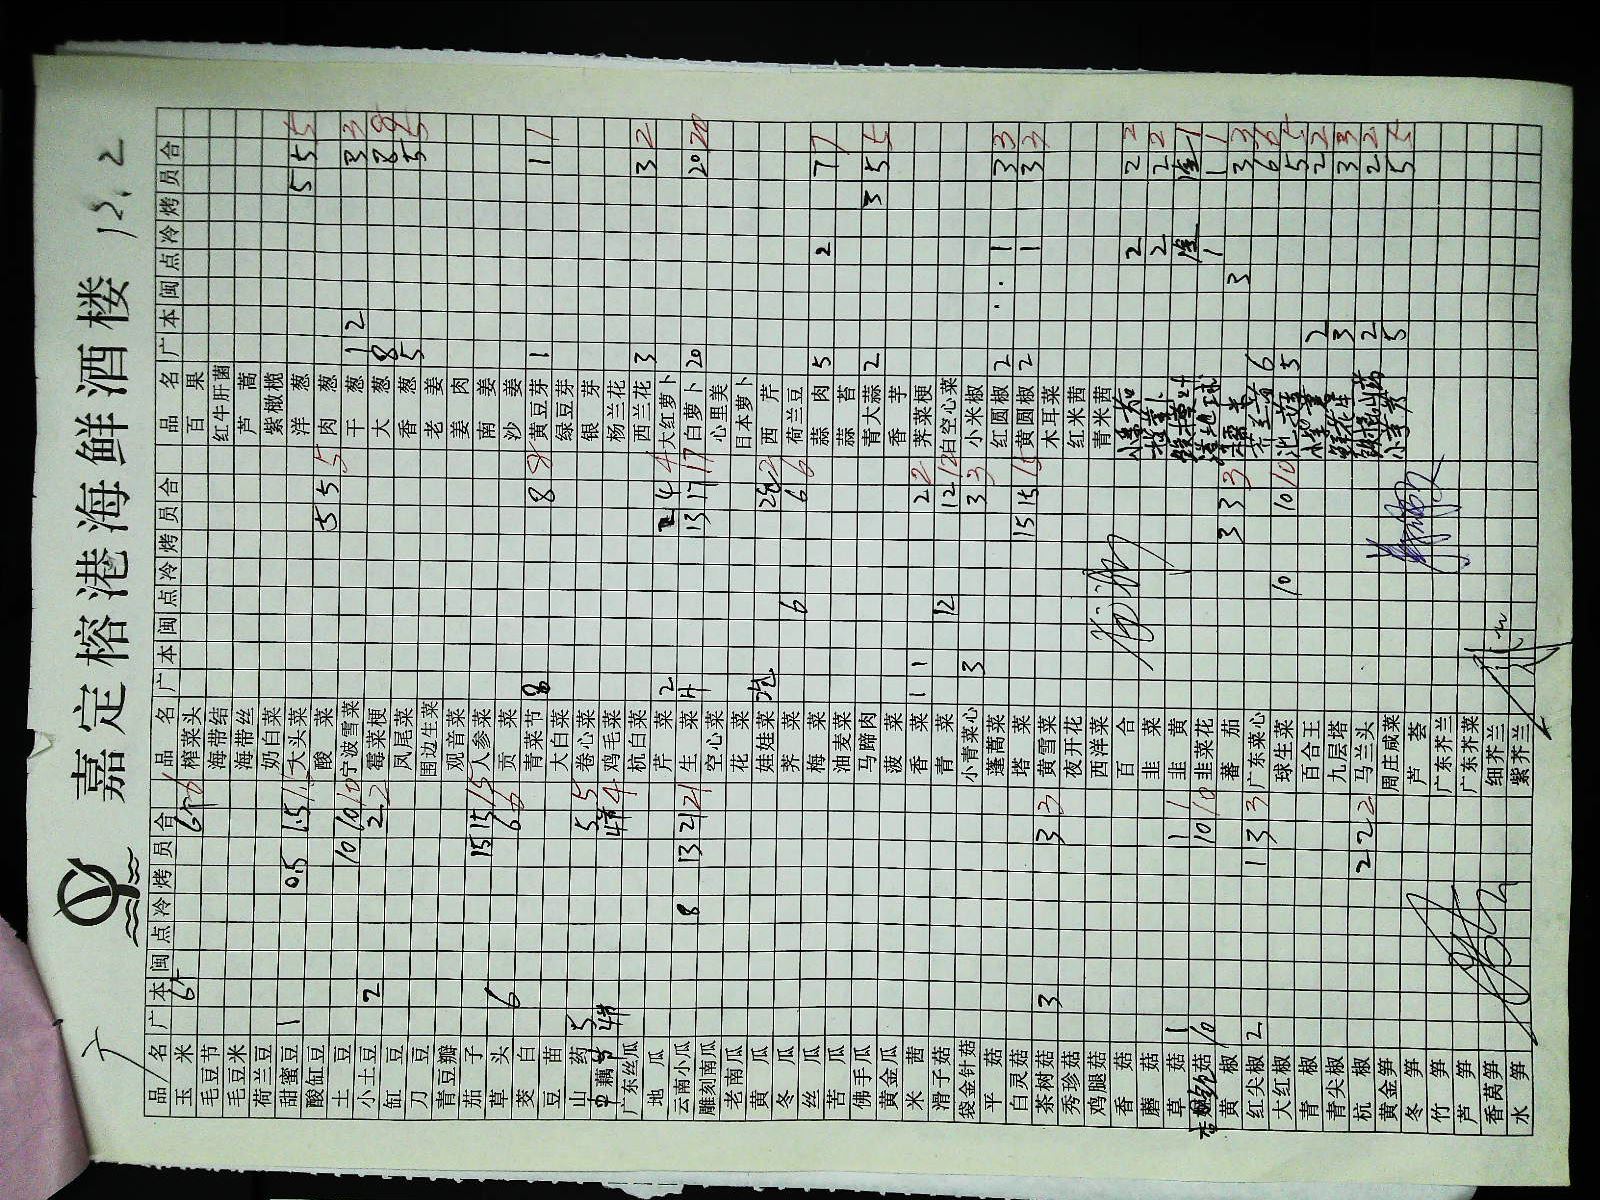 嘉定榕港海鲜酒楼 12.2
品名 广 本 闽 点 冷 烤 员 合 品名 广 本 闽 点 冷 烤 员 合 品名 广 本 闽 点 冷 烤 员 合
玉米 榨菜头 百果
毛豆节 海带结 红牛肝菌
毛豆米 海带丝 芦蒿
荷兰豆 奶白菜 紫橄榄
甜蜜豆 1 0.5 1.5 大头菜 洋葱 5 5 5
酸豇豆 酸菜 5 5 5 肉葱
土豆 10 10 10 宁波雪菜 干葱 1 2 3 3
小土豆 2 2 2 霉菜梗 大葱 8 8 8
豇豆 凤尾菜 香葱 5 5 5
刀豆 围边生菜 老姜
青豆瓣 观音菜 姜肉
茄子 15 15 15 人参菜 南姜
草头 6 6 贡菜 沙姜
茭白 青菜节 8 8 8 黄豆芽 1 1 1
豆苗 大白菜 绿豆芽
山药 5 5 5 卷心菜 银芽
藕 4 鸡毛菜 杨兰花
广东丝瓜 杭白菜 西兰花 3 3 2
地瓜 芹菜 2 2 4 4 大红萝卜
云南小瓜 8 13 21 21 生菜 13 17 17 白萝卜 20 20 20
雕刻南瓜 空心菜 心里美
老南瓜 花菜 日本萝卜
黄瓜 娃娃菜 西芹
冬瓜 荠菜 6 6 6 荷兰豆
丝瓜 梅菜 蒜肉 5 2 7 7
苦瓜 油麦菜 蒜苔
佛手瓜 马蹄肉 青大蒜 2 3 5 5
黄金瓜 菠菜 香芋
米茜 香菜 1 1 2 2 荠菜梗
滑子菇 青菜 12 12 12 白空心菜
袋金针菇 小青菜心 3 3 3 小米椒
平菇 蓬蒿菜 红圆椒 2 1 3 3
白灵菇 塔菜 15 15 15 黄圆椒 2 1 3 3
茶树菇 3 3 3 黄雪菜 木耳菜
秀珍菇 夜开花 红米茜
鸡腿菇 西洋菜 青米茜
香菇 百合 2 2 2
蘑菇 韭菜 2 2 2
草菇 1 1 1 韭黄
菇 10 10 10 韭菜花 1 1 1
黄椒 蕃茄 3 3 3 3 3 3
红尖椒 2 1 3 3 广东菜心 6 6 6
大红椒 球生菜 10 10 10 5 5 5
青椒 百合王 2 2 2
青尖椒 九层塔 3 3 3
杭椒 2 2 2 马兰头 2 2 2
黄金笋 周庄咸菜 5 5 5
冬笋 芦荟
竹笋 广东芥兰
芦笋 广东芥菜
香莴笋 细芥兰
水笋 紫芥兰